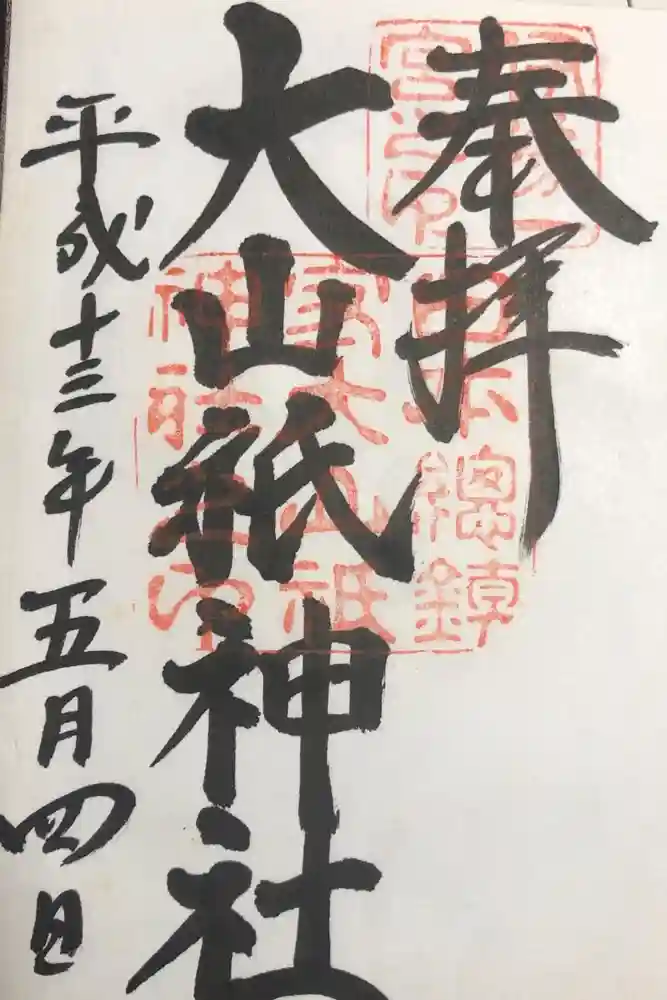 奉拝
大山祇神社
平成十三年五月四日
日本總鎮
守大山祇
神社之印